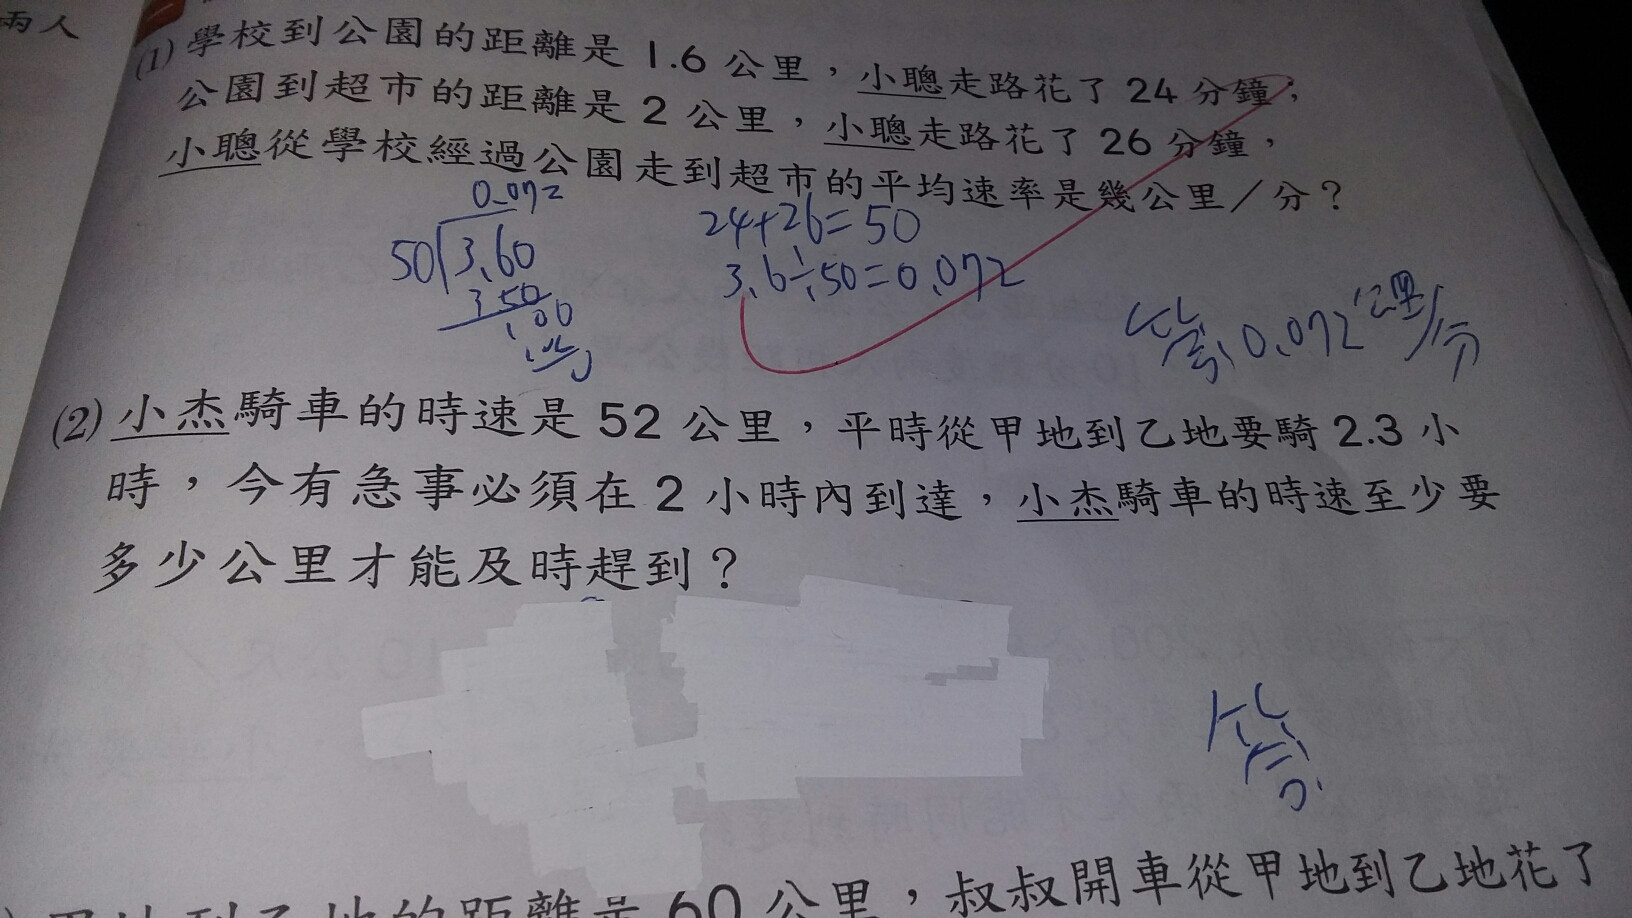 兩人
(1) 學校到公園的距離是 1.6 公里，小聰走路花了 24 分鐘；
公園到超市的距離是 2 公里，小聰走路花了 26 分鐘，
小聰從學校經過公園走到超市的平均速率是幾公里／分？
0.072
50 3.60
350
100
100
0
24+26=50
3.6÷50=0.072
答:0.072公里/分
(2) 小杰騎車的時速是 52 公里，平時從甲地到乙地要騎 2.3 小
時，今有急事必須在 2 小時內到達，小杰騎車的時速至少要
多少公里才能及時趕到？
答:
甲地到乙地的距離是 60 公里，叔叔開車從甲地到乙地花了